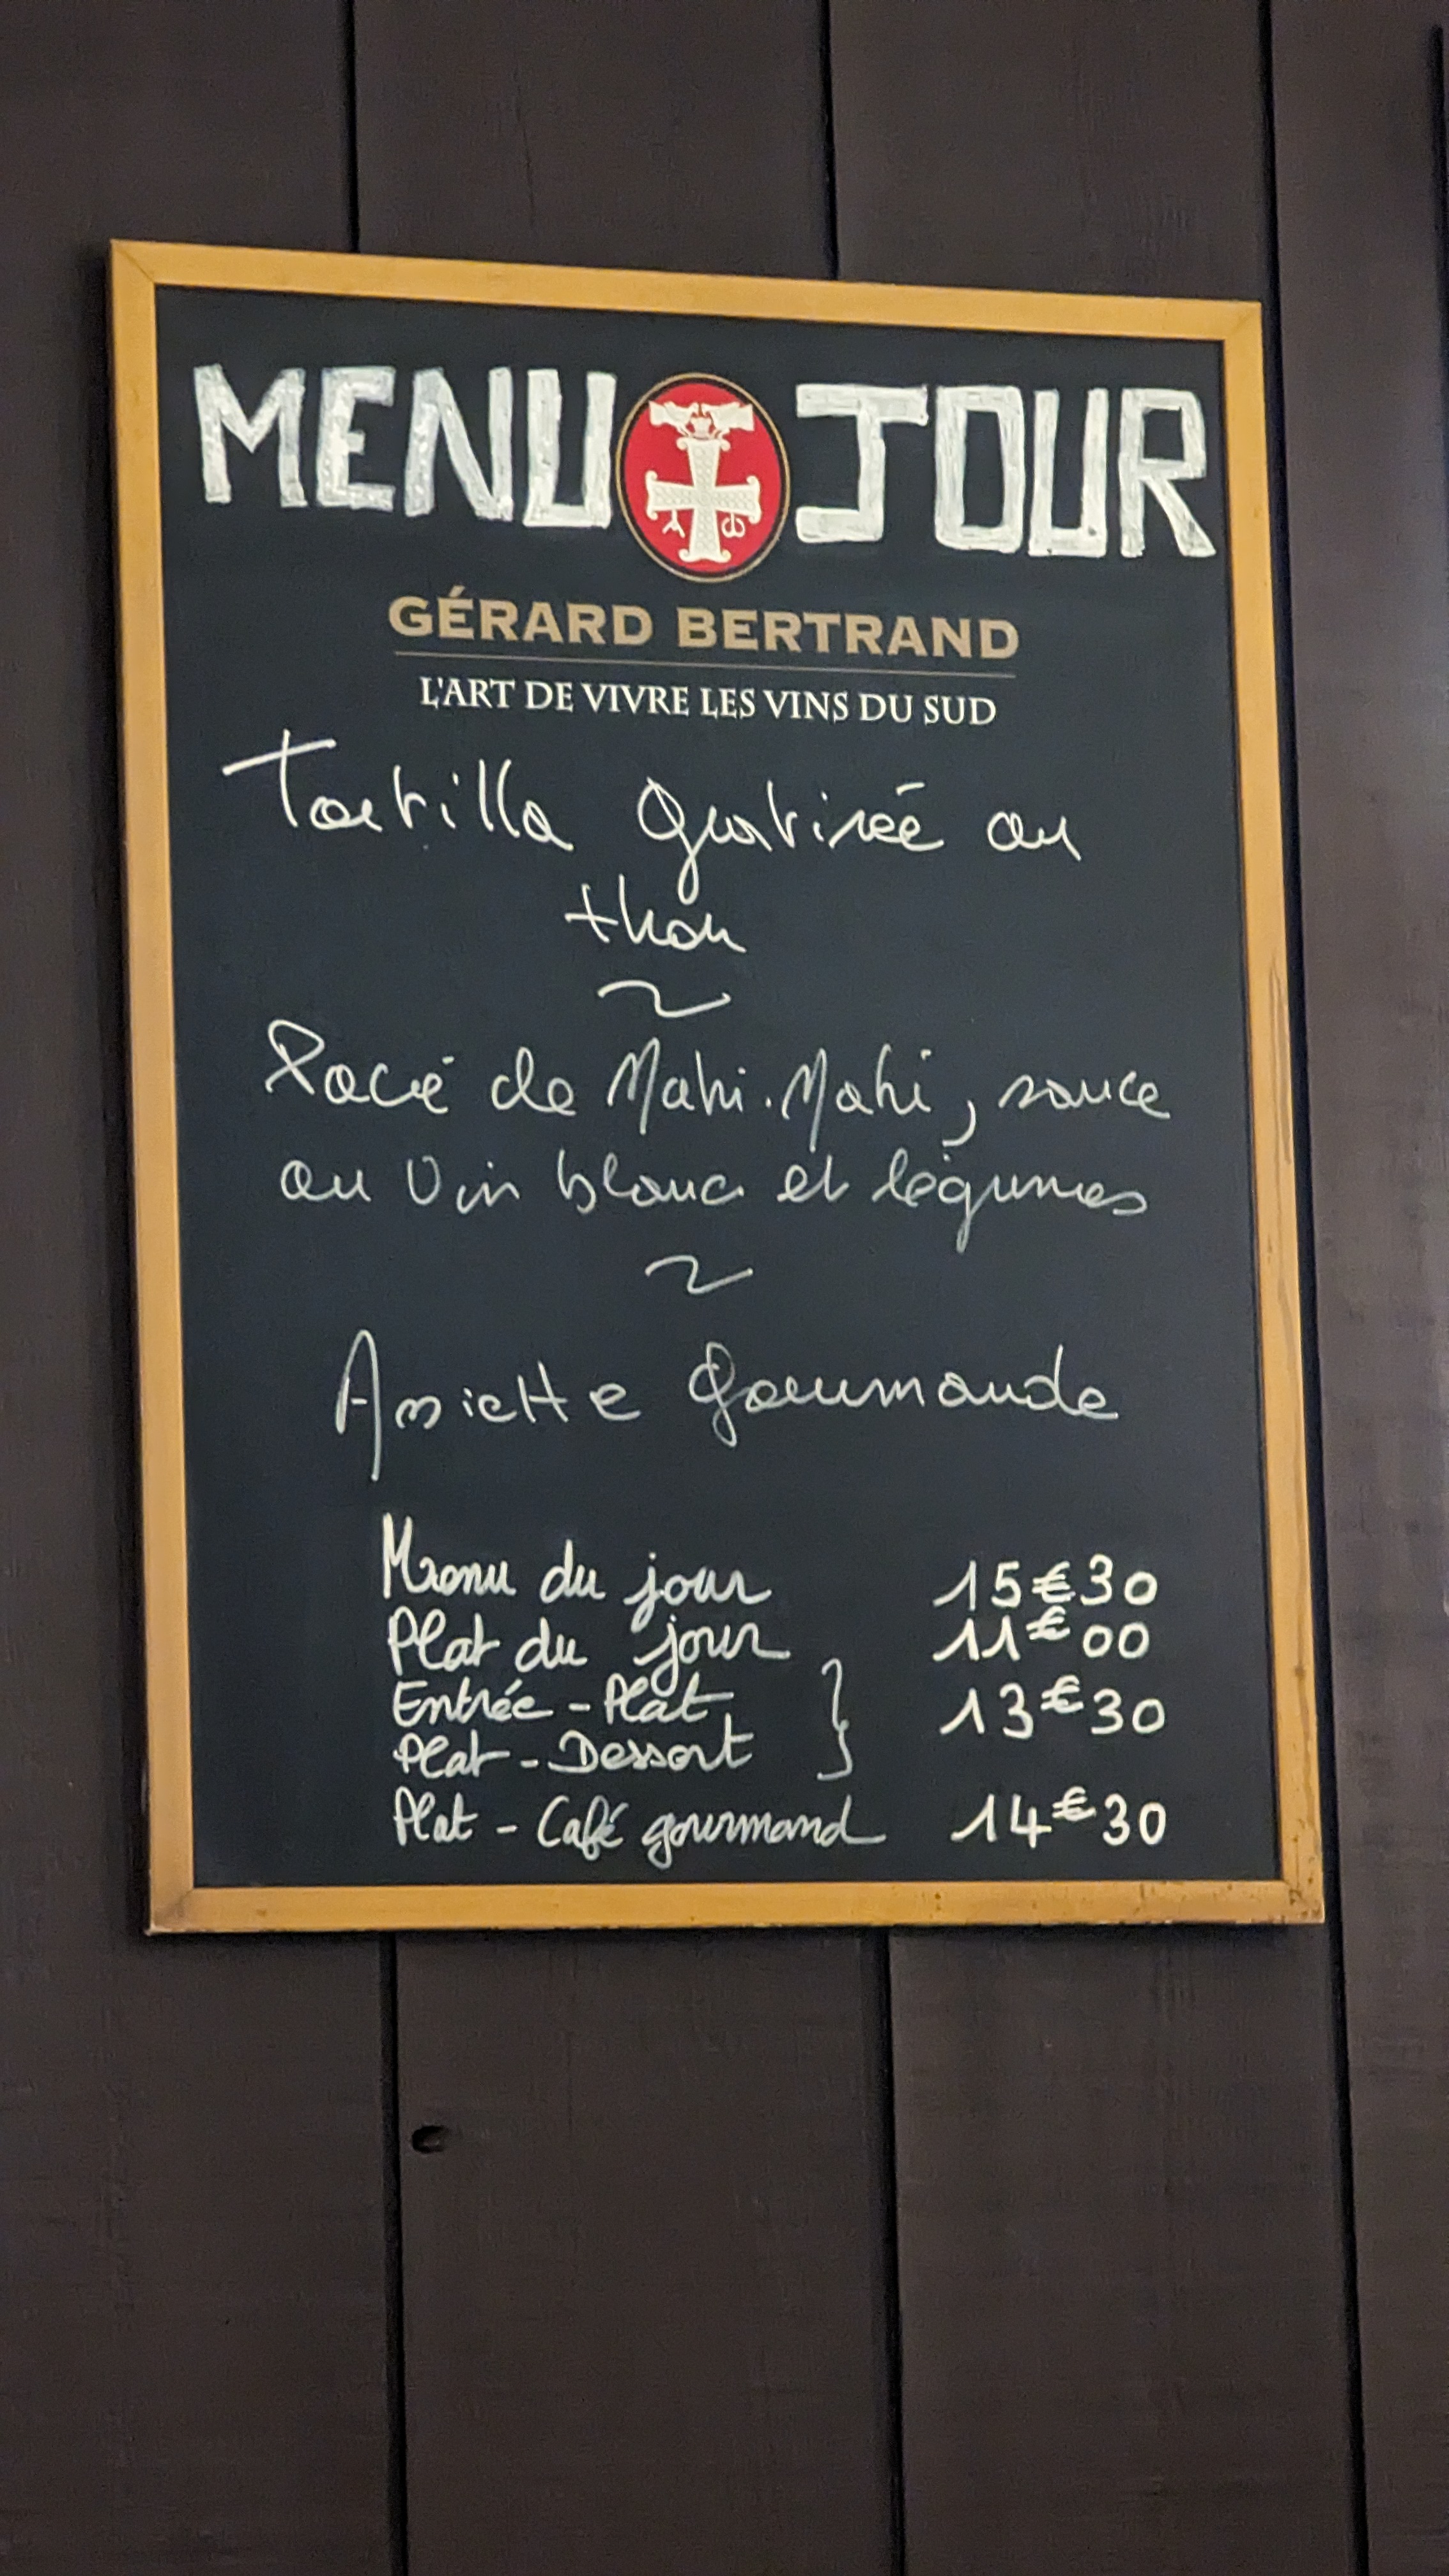 MENU JOUR
GÉRARD BERTRAND
L'ART DE VIVRE LES VINS DU SUD
Tortilla gratinée au
thon
~
Pavé de Mahi.Mahi, sauce
au vin blanc et légumes
~
Assiette gourmande
Menu du jour 15€30
Plat du jour 11€00
Entrée - Plat } 13€30
Plat - Dessert
Plat - Café gourmand 14€30